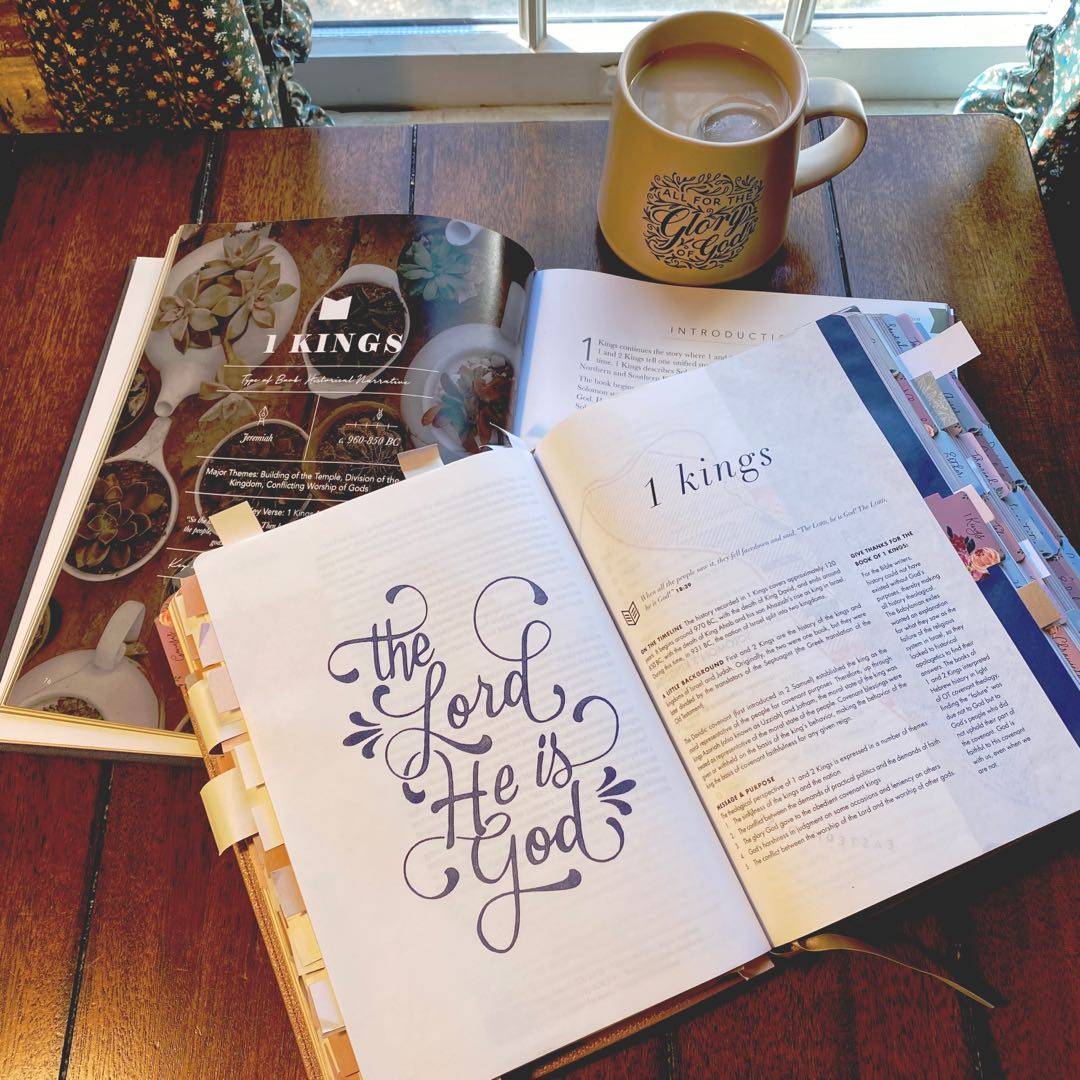 ALL FOR THE
Glory
OF God
1 KINGS
Type of Book: Historical Narrative
Jeremiah
c. 960-850 BC
Major Themes: Building of the Temple, Division of the
Kingdom, Conflicting Worship of Gods
Key Verse: 1 Kings
16
INTRODUCTI
1 Kings continues the story where 1 and
1 and 2 Kings tell one unified
time. 1 Kings describes
Northern and Southern
The book begin
Solomon
God.
the
Lord
He is
God
1 kings
When all the people saw it, they fell facedown and said, "The LORD, he is God! The LORD,
he is God!" 18:39
ON THE TIMELINE The history recorded in 1 Kings covers approximately 120
years. It begins around 970 BC, with the death of King David, and ends around
850 BC, with the death of King Ahab and his son Ahaziah's rise as king in Israel.
During this time, in 931 BC, the nation of Israel split into two kingdoms.
A LITTLE BACKGROUND First and 2 Kings are the history of the kings and
kingdoms of Israel and Judah. Originally, the two were one book, but they were
later divided by the translators of the Septuagint (the Greek translation of the
Old Testament).
The Davidic covenant (first introduced in 2 Samuel) established the king as the
moral representative of the people for covenant purposes. Therefore, up through
kings Azariah (also known as Uzziah) and Jotham, the moral state of the king was
treated as representative of the moral state of the people. Covenant blessings were
given or withheld on the basis of the king's behavior, making the behavior of the
king the basis of covenant faithfulness for any given reign.
MESSAGE & PURPOSE
The theological perspective of 1 and 2 Kings is expressed in a number of themes:
1. The sinfulness of the kings and the nation
2. The conflict between the demands of practical politics and the demands of faith
3. The glory God gave to the obedient covenant kings
4. God's harshness in judgment on some occasions and leniency on others
5. The conflict between the worship of the Lord and the worship of other gods.
GIVE THANKS FOR THE
BOOK OF 1 KINGS:
For the Bible writers,
history could not have
existed without God's
purposes, thereby making
all history theological.
The Babylonian exiles
wanted an explanation
for what they saw as the
failure of the religious
system in Israel, so they
looked to historical
apologetics to find their
answers. The books of
1 and 2 Kings interpreted
Hebrew history in light
of OT covenant theology,
finding the "failure" was
not due to God but to
God's people who did
not uphold their part of
the covenant. God is
faithful to His covenant
with us, even when we
are not.
1 Kings
Esther